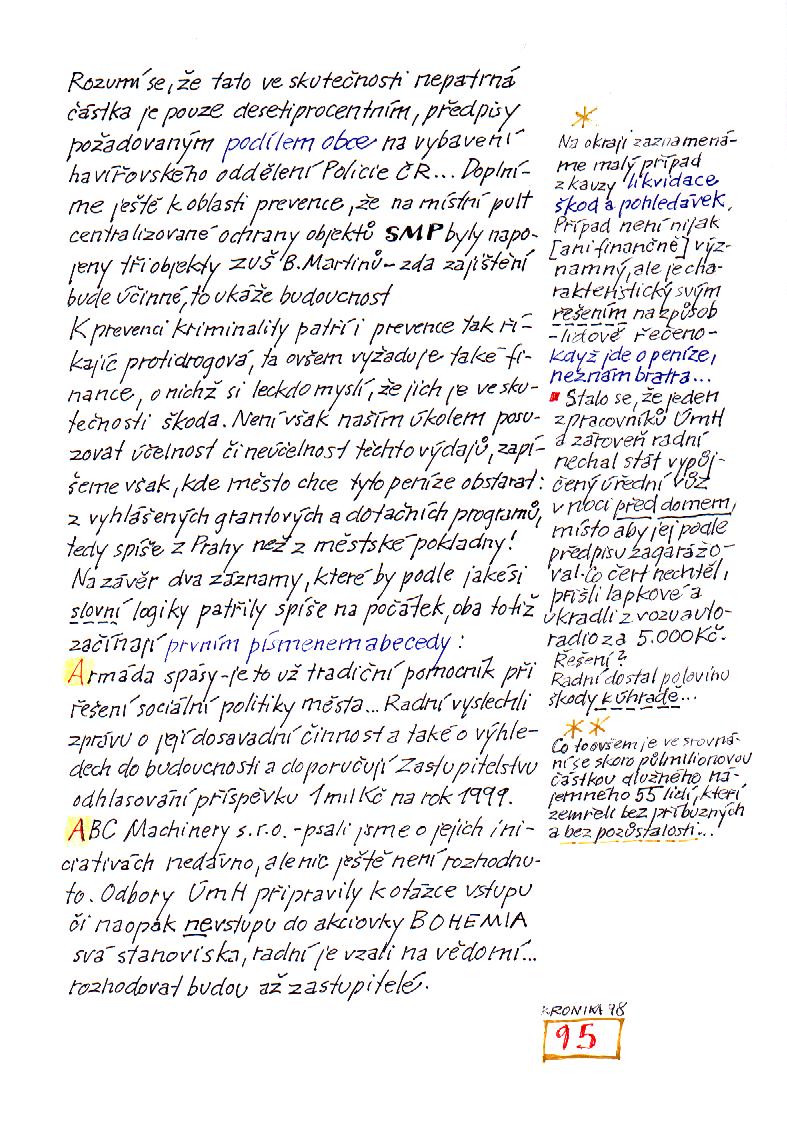 Rozumí se, že tato ve skutečnosti nepatrná
částka je pouze desetiprocentním, předpisy
požadovaným podílem obce na vybavení
havířovského oddělení Policie ČR... Doplní-
me ještě k oblasti prevence, že na místní pult
centralizované ochrany objektů SMP byly napo-
jeny tři objekty ZUŠ B. Martinů - zda zajištění
bude účinné, to ukáže budoucnost
K prevenci kriminality patří i prevence tak ří-
kajíc protidrogová, ta ovšem vyžaduje také fi-
nance, o nichž si leckdo myslí, že jich je ve sku-
tečnosti škoda. Není však naším úkolem posu-
zovat účelnost či neúčelnost těchto výdajů, zapí-
šeme však, kde město chce tyto peníze obstarat:
z vyhlášených grantových a dotačních programů,
tedy spíše z Prahy než z městské pokladny!
Na závěr dva záznamy, které by podle jakési
slovní logiky patřily spíše na počátek, oba totiž
začínají prvním písmenem abecedy:
Armáda spásy - je to už tradiční pomocník při
řešení sociální politiky města... Radní vyslechli
zprávu o její dosavadní činnost a také o výhle-
dech do budoucnosti a doporučují Zastupitelstvu
odhlasování příspěvku 1 mil Kč na rok 1999.
ABC Machinery s.r.o. - psali jsme o jejich ini-
ciativách nedávno, ale nic ještě není rozhodnu-
to. Odbory ÚmH připravily k otázce vstupu
či naopak nevstupu do akciovky BOHEMIA
svá stanoviska, radní je vzali na vědomí...
rozhodovat budou až zastupitelé.
*
Na okraji zaznamená-
me malý případ
z kauzy likvidace
škod a pohledávek.
Případ není nijak
[ani finančně] výz-
namný, ale je cha-
rakteristický svým
řešením na způsob
- lidově řečeno -
když jde o peníze,
neznám bratra...
Stalo se, že jeden
z pracovníků ÚmH
a zároveň radní
nechal stát vypůj-
čený úřední vůz
v noci před domem,
místo aby jej podle
předpisu zagarážo-
val. Co čert nechtěl,
přišli lapkové a
ukradli z vozu auto-
radio za 5.000 Kč.
Řešení?
Radní dostal polovinu
škody k úhradě...
**
Co to ovšem je ve srovná-
ní se skoro půlmilionovou
částkou dlužného ná-
jemného 55 lidí, kteří
zemřeli bez příbuzných
a bez pozůstalosti...
KRONIKA 98
95